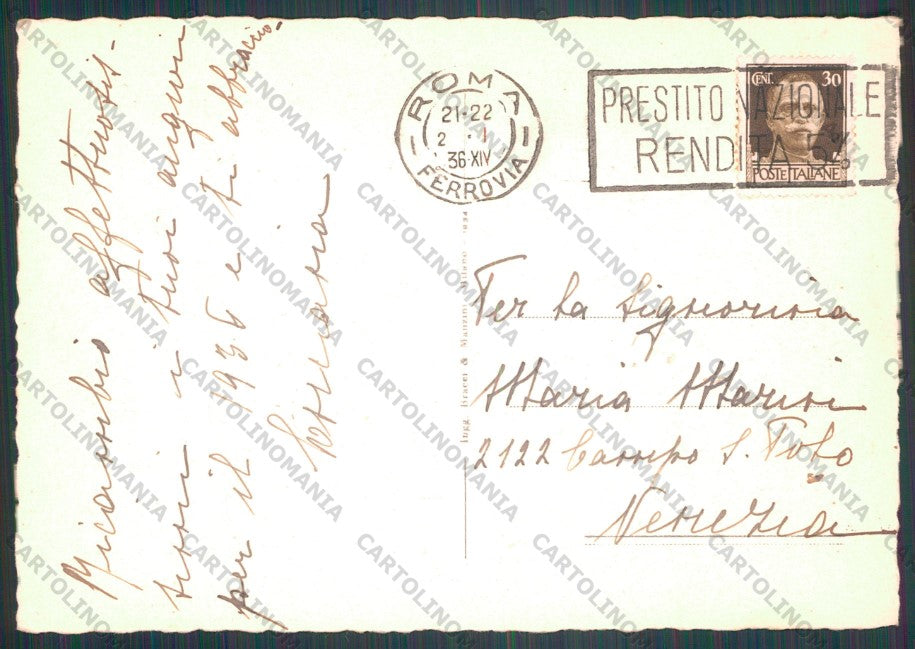 Ricambio affettuosis-
simi i tuoi auguri
per il 1936 e ti abbraccio.
ROMA
21·22
2 · I
36·XIV
FERROVIA
PRESTITO NAZIONALE
RENDITA 5%
CENT. 30
POSTE ITALIANE
Ingg. Bracci & Manzini Milano
Per la Signorina
Maria Marini
2122 Campo S. Polo
Venezia
CARTOLINOMANIA